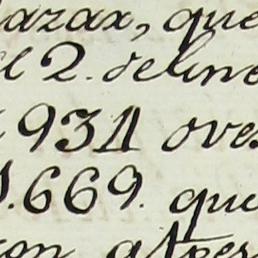 azax, que
el 2. de line
934 oves
.669. que
con